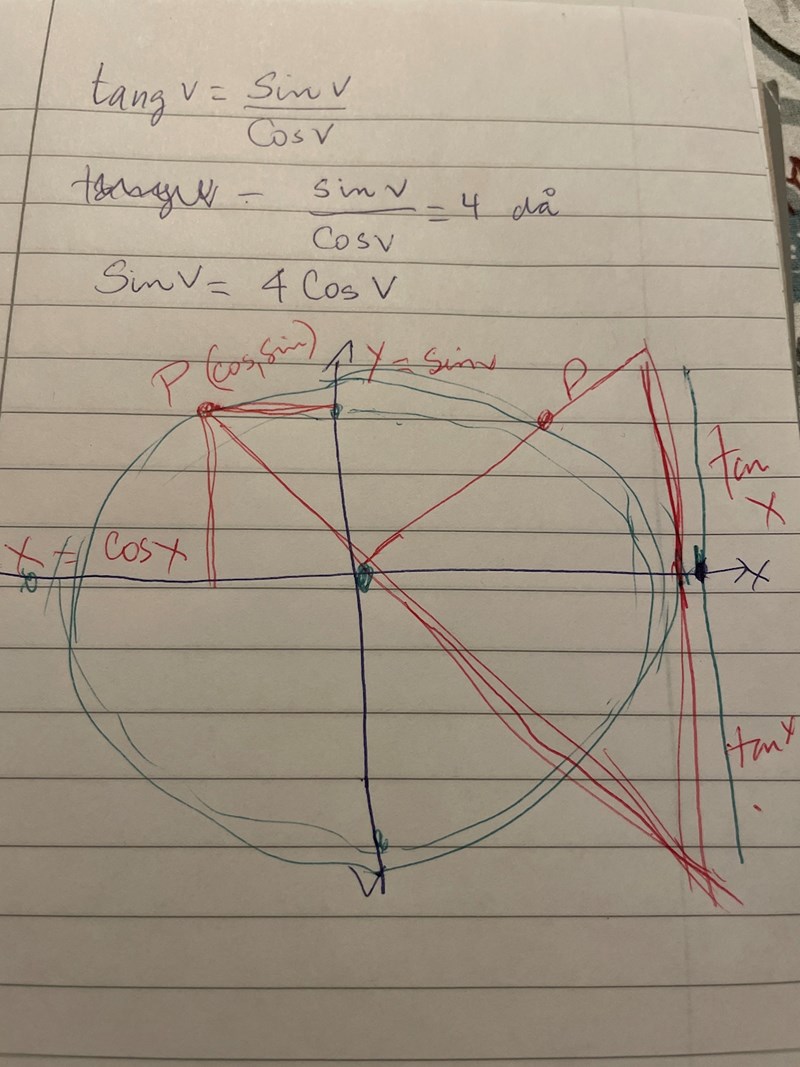 tang v = sin v
cos v
sin v = 4 då
cos v
Sin v = 4 Cos v
P (cos, sin) Y = sin v
P
tan
x
X = cos x
X
tan x